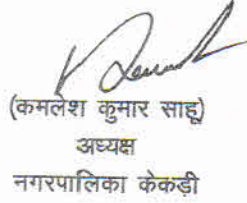 (कमलेश कुमार साहू)
अध्यक्ष
नगरपालिका केकड़ी